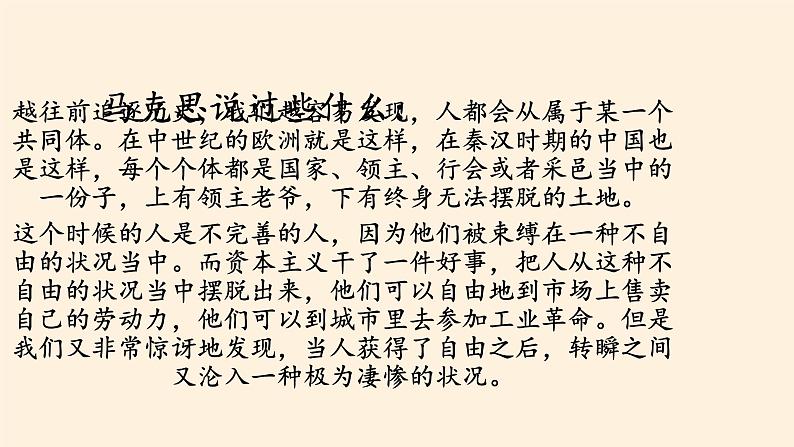 马克思说过些什么
越往前追逐历史，我们越容易发现，人都会从属于某一个
共同体。在中世纪的欧洲就是这样，在秦汉时期的中国也
是这样，每个个体都是国家、领主、行会或者采邑当中的
一份子，上有领主老爷，下有终身无法摆脱的土地。
这个时候的人是不完善的人，因为他们被束缚在一种不自
由的状况当中。而资本主义干了一件好事，把人从这种不
自由的状况当中摆脱出来，他们可以自由地到市场上售卖
自己的劳动力，他们可以到城市里去参加工业革命。但是
我们又非常惊讶地发现，当人获得了自由之后，转瞬之间
又沦入一种极为凄惨的状况。